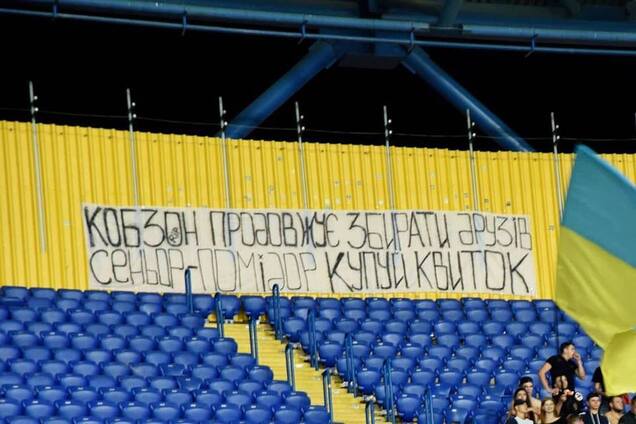 КОБЗОН ПРОДОВЖУЄ ЗБИРАТИ ДРУЗІВ
СЕНЬОР-ПОМІДОР КУПУЙ КВИТОК